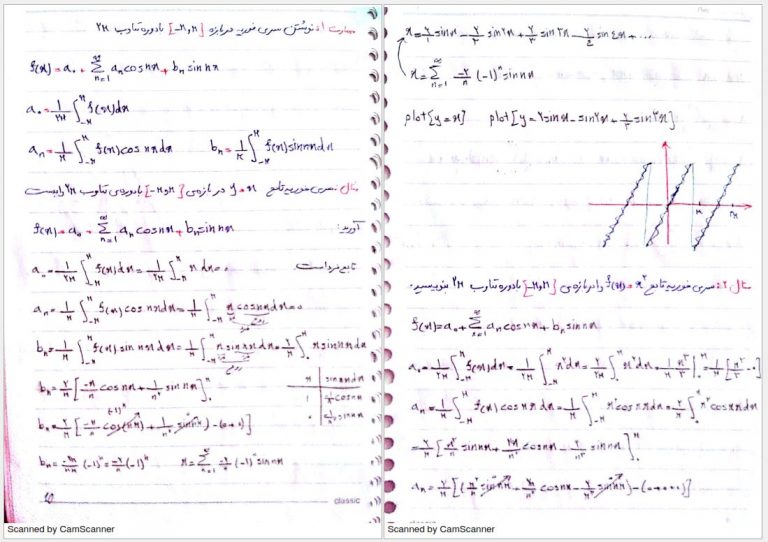 مهارت ۱: نوشتن سری فوریه در بازه [-π و π] با دوره تناوب ۲π
f(x) = a₀ + Σ_{n=1}^{∞} aₙ cos nx + bₙ sin nx
a₀ = ۱/۲π ∫_{-π}^{π} f(x) dx
aₙ = ۱/π ∫_{-π}^{π} f(x) cos nx dx    bₙ = ۱/π ∫_{-π}^{π} f(x) sin nx dx
مثال: سری فوریه تابع y = x در بازه‌ی [-π و π] با دوره‌ی تناوب ۲π را بدست
آورید:
f(x) = a₀ + Σ_{n=1}^{∞} aₙ cos nx + bₙ sin nx
a₀ = ۱/۲π ∫_{-π}^{π} f(x) dx = ۱/۲π ∫_{-π}^{π} x dx = ۰    تابع فرد است
aₙ = ۱/π ∫_{-π}^{π} f(x) cos nx dx = ۱/π ∫_{-π}^{π} x cos nx dx = ۰
bₙ = ۱/π ∫_{-π}^{π} f(x) sin nx dx = ۱/π ∫_{-π}^{π} x sin nx dx = ۲/π ∫_{۰}^{π} x sin nx dx
زوج
bₙ = ۲/π [-x/n cos nx + ۱/n² sin nx]_{۰}^{π}
x | sin nx dx
۱ | -۱/n cos nx
۰ | -۱/n² sin nx
(-۱)ⁿ
bₙ = ۲/π [(-π/n cos(nπ) + ۱/n² sin nπ) - (۰+۰)]
bₙ = -۲π/πn (-۱)ⁿ = -۲/n (-۱)ⁿ    x = Σ_{n=1}^{∞} -۲/n (-۱)ⁿ sin nx
10
classic
Scanned by CamScanner
x = ۲/۱ sin x - ۲/۲ sin ۲x + ۲/۳ sin ۳x - ۲/۴ sin ۴x + ...
x = Σ_{n=1}^{∞} -۲/n (-۱)ⁿ sin nx
plot[y = x]    plot[y = ۲ sin x - sin ۲x + ۲/۳ sin ۳x]
π ۲π
مثال ۲: سری فوریه تابع f(x) = x² را در بازه‌ی [-π و π] با دوره تناوب ۲π بنویسید.
f(x) = a₀ + Σ_{n=1}^{∞} aₙ cos nx + bₙ sin nx
a₀ = ۱/۲π ∫_{-π}^{π} f(x) dx = ۱/۲π ∫_{-π}^{π} x² dx = ۲/۲π ∫_{۰}^{π} x² dx = ۱/π x³/۳ |_{۰}^{π} = ۱/π [π³/۳ - ۰]
aₙ = ۱/π ∫_{-π}^{π} f(x) cos nx dx = ۱/π ∫_{-π}^{π} x² cos nx dx = ۲/π ∫_{۰}^{π} x² cos nx dx
= ۲/π [x²/n sin nx + ۲x/n² cos nx - ۲/n³ sin nx]_{۰}^{π}
aₙ = ۲/π [(π²/n sin nπ + ۲π/n² cos nπ - ۲/n³ sin nπ) - (۰+۰+۰)]
classic
Scanned by CamScanner